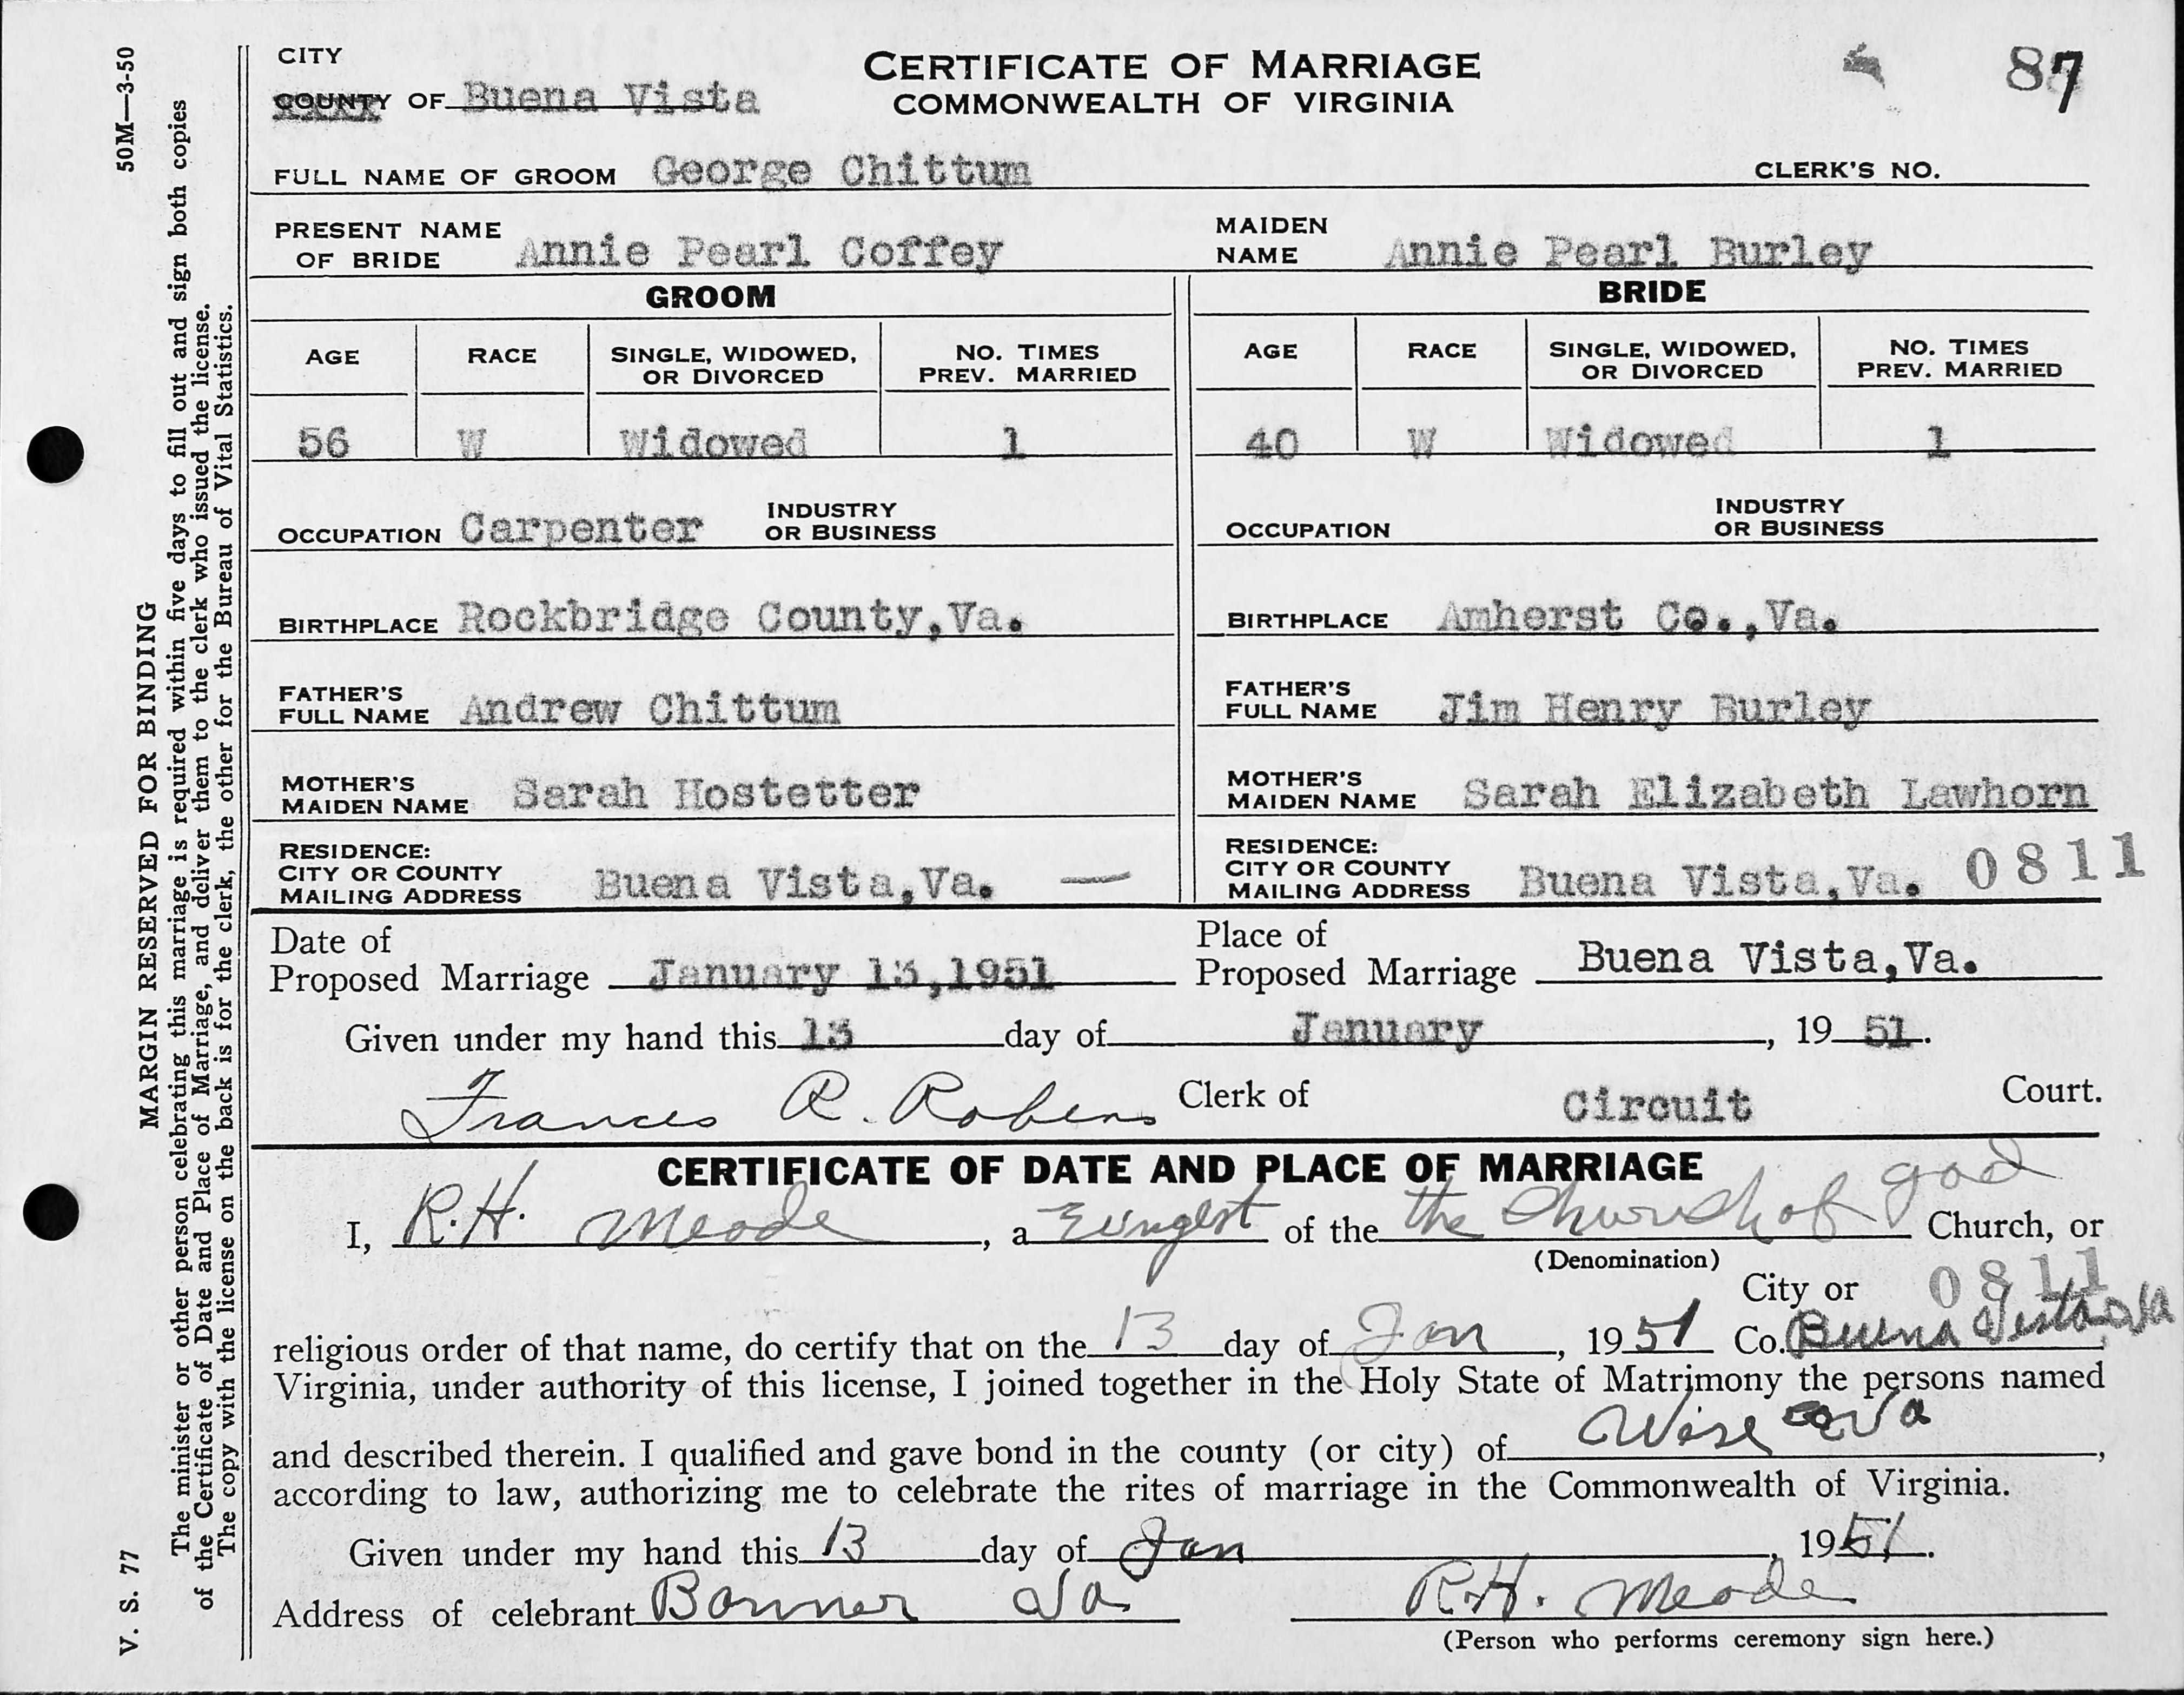 CITY
COUNTY OF Buena Vista
CERTIFICATE OF MARRIAGE
COMMONWEALTH OF VIRGINIA
87
FULL NAME OF GROOM George Chittum CLERK'S NO.
PRESENT NAME OF BRIDE Annie Pearl Coffey MAIDEN NAME Annie Pearl Burley
GROOM BRIDE
AGE RACE SINGLE, WIDOWED, OR DIVORCED NO. TIMES PREV. MARRIED AGE RACE SINGLE, WIDOWED, OR DIVORCED NO. TIMES PREV. MARRIED
56 W Widowed 1 40 W Widowed 1
OCCUPATION Carpenter INDUSTRY OR BUSINESS OCCUPATION INDUSTRY OR BUSINESS
BIRTHPLACE Rockbridge County,Va. BIRTHPLACE Amherst Co.,Va.
FATHER'S FULL NAME Andrew Chittum FATHER'S FULL NAME Jim Henry Burley
MOTHER'S MAIDEN NAME Sarah Hostetter MOTHER'S MAIDEN NAME Sarah Elizabeth Lawhorn
RESIDENCE: CITY OR COUNTY MAILING ADDRESS Buena Vista,Va. — RESIDENCE: CITY OR COUNTY MAILING ADDRESS Buena Vista,Va. 0811
Date of Proposed Marriage January 13,1951 Place of Proposed Marriage Buena Vista,Va.
Given under my hand this 13 day of January, 19 51.
Frances R. Robens Clerk of Circuit Court.
CERTIFICATE OF DATE AND PLACE OF MARRIAGE
I, R.H. Meade, a Evngest of the the Church of god Church, or
(Denomination)
City or 0811
religious order of that name, do certify that on the 13 day of Jan, 1951 Co. Buena Vista Va
Virginia, under authority of this license, I joined together in the Holy State of Matrimony the persons named
and described therein. I qualified and gave bond in the county (or city) of Wise Va,
according to law, authorizing me to celebrate the rites of marriage in the Commonwealth of Virginia.
Given under my hand this 13 day of Jan, 1951.
Address of celebrant Banner Va R.H. Meade
(Person who performs ceremony sign here.)
V. S. 77 MARGIN RESERVED FOR BINDING 50M—3-50
The minister or other person celebrating this marriage is required within five days to fill out and sign both copies
of the Certificate of Date and Place of Marriage, and deliver them to the clerk who issued the license.
The copy with the license on the back is for the clerk, the other for the Bureau of Vital Statistics.